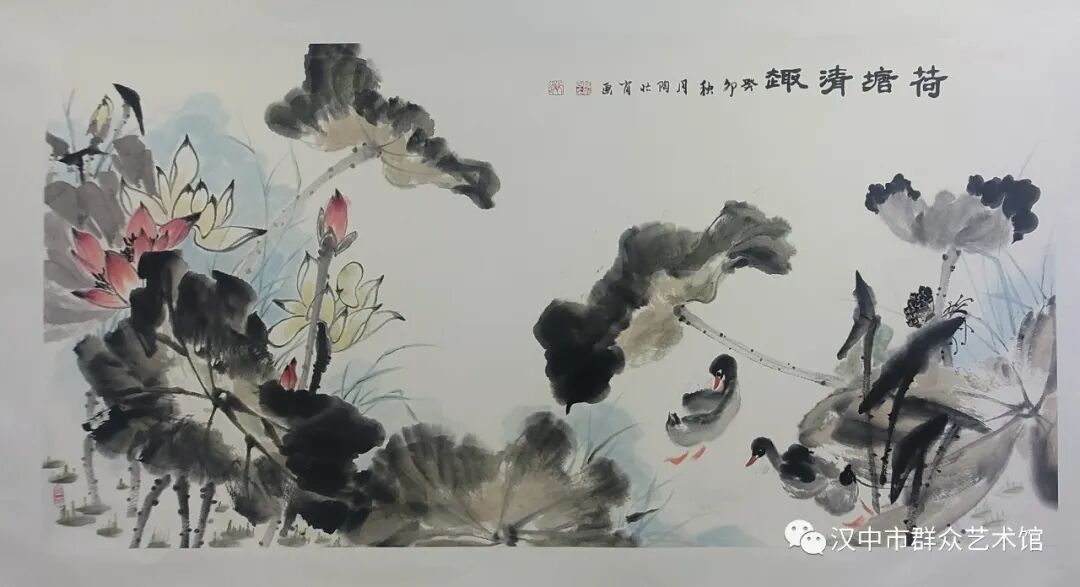 荷塘清趣 癸卯秋月陶壮肖画
汉中市群众艺术馆